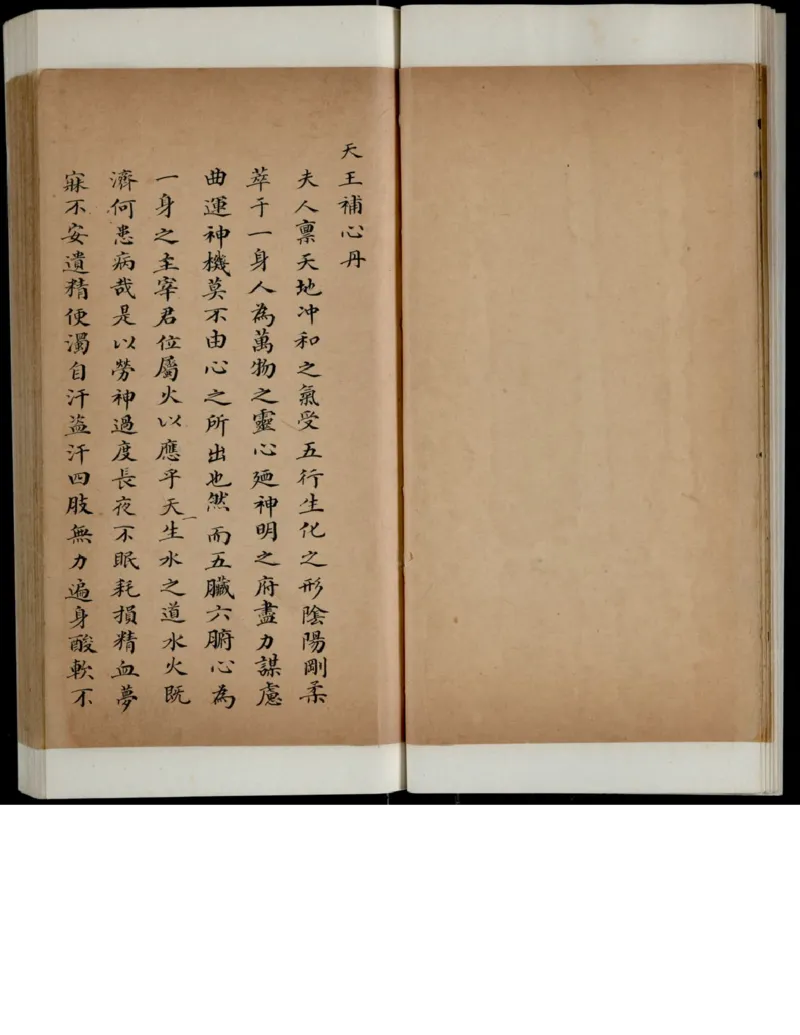 天王補心丹
夫人稟天地冲和之氣受五行生化之形陰陽剛柔
萃于一身人為萬物之靈心廼神明之府盡力謀慮
曲運神機莫不由心之所出也然而五臟六腑心為
一身之主宰君位屬火以應乎天一生水之道水火既
濟何患病哉是以勞神過度長夜不眠耗損精血夢
寐不安遺精便濁自汗盜汗四肢無力遍身酸軟不